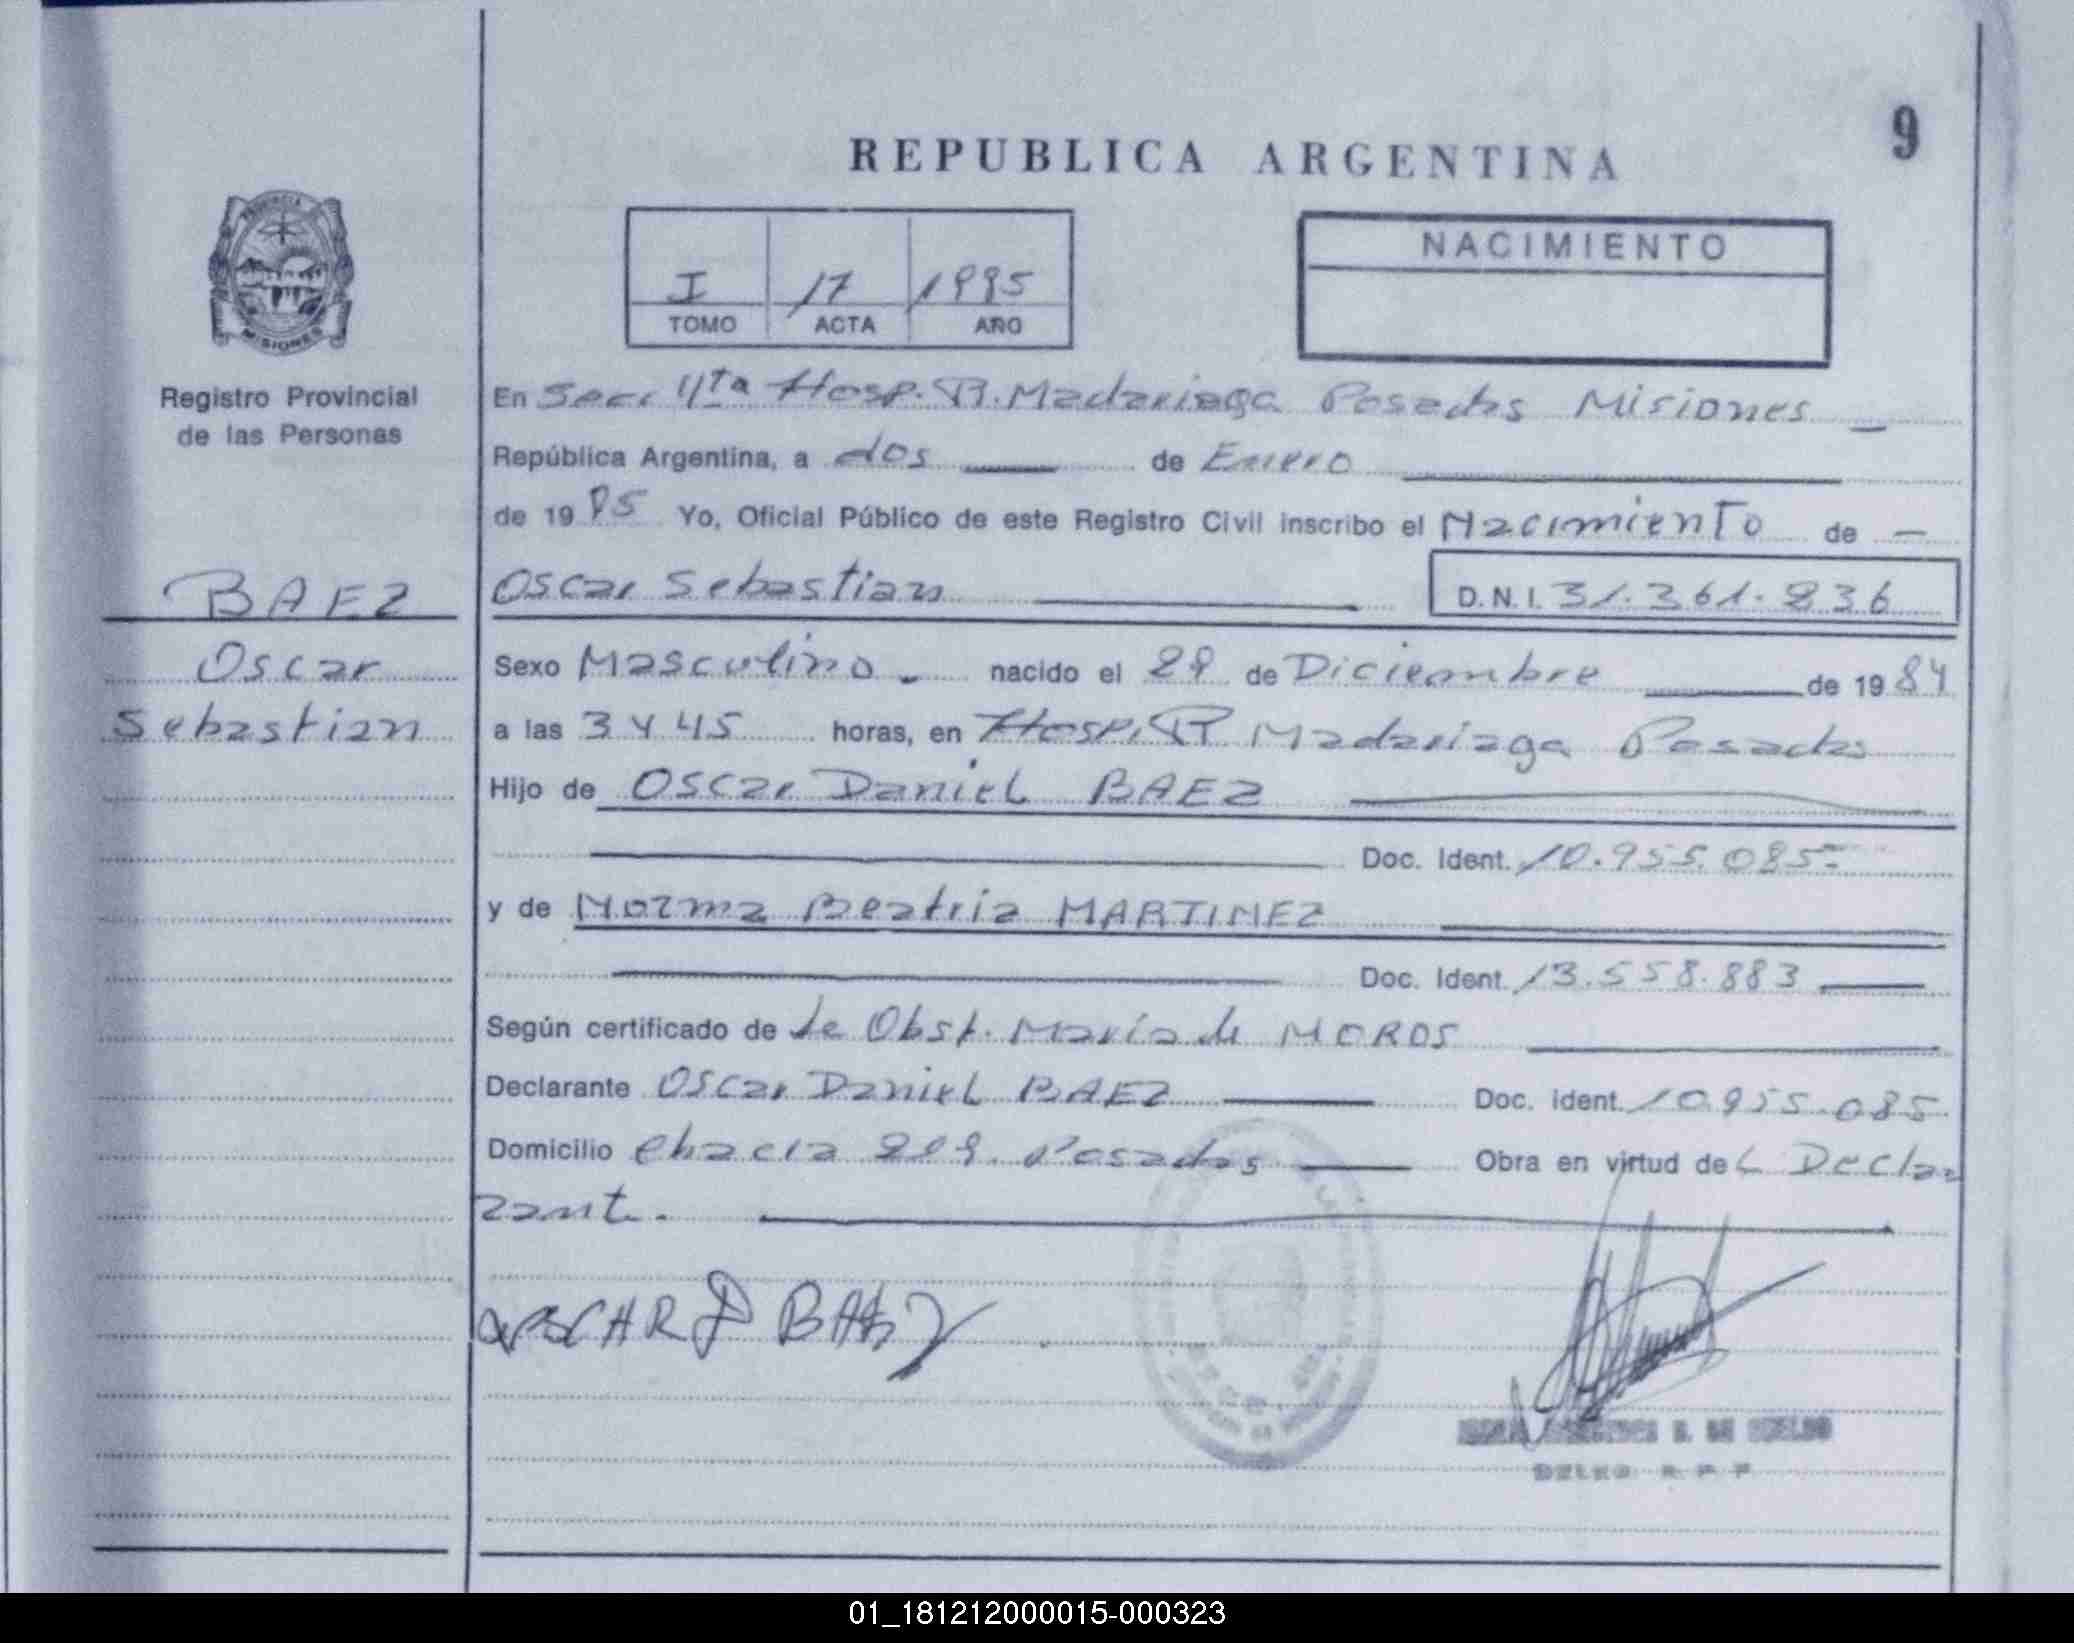 9
REPUBLICA ARGENTINA
PROVINCIA
MISIONES
I 17 1985
TOMO ACTA AÑO
NACIMIENTO
Registro Provincial
de las Personas
En Secc 4ta Hosp. R. Madariaga Posadas Misiones
República Argentina, a dos de Enero
de 1985 Yo, Oficial Público de este Registro Civil inscribo el Nacimiento de
BAEZ Oscar Sebastian D.N.I. 31.361.836
Oscar
Sebastian
Sexo Masculino nacido el 29 de Diciembre de 1984
a las 3 y 45 horas, en Hosp. R Madariaga Posadas
Hijo de Oscar Daniel BAEZ
Doc. Ident. 10.955.085
y de Norma Beatriz MARTINEZ
Doc. Ident. 13.558.883
Según certificado de la Obst. Maria de MOROS
Declarante Oscar Daniel BAEZ Doc. Ident. 10.955.085
Domicilio Chacra Posadas Obra en virtud de L Decla
rante.
OSCAR D BAEZ